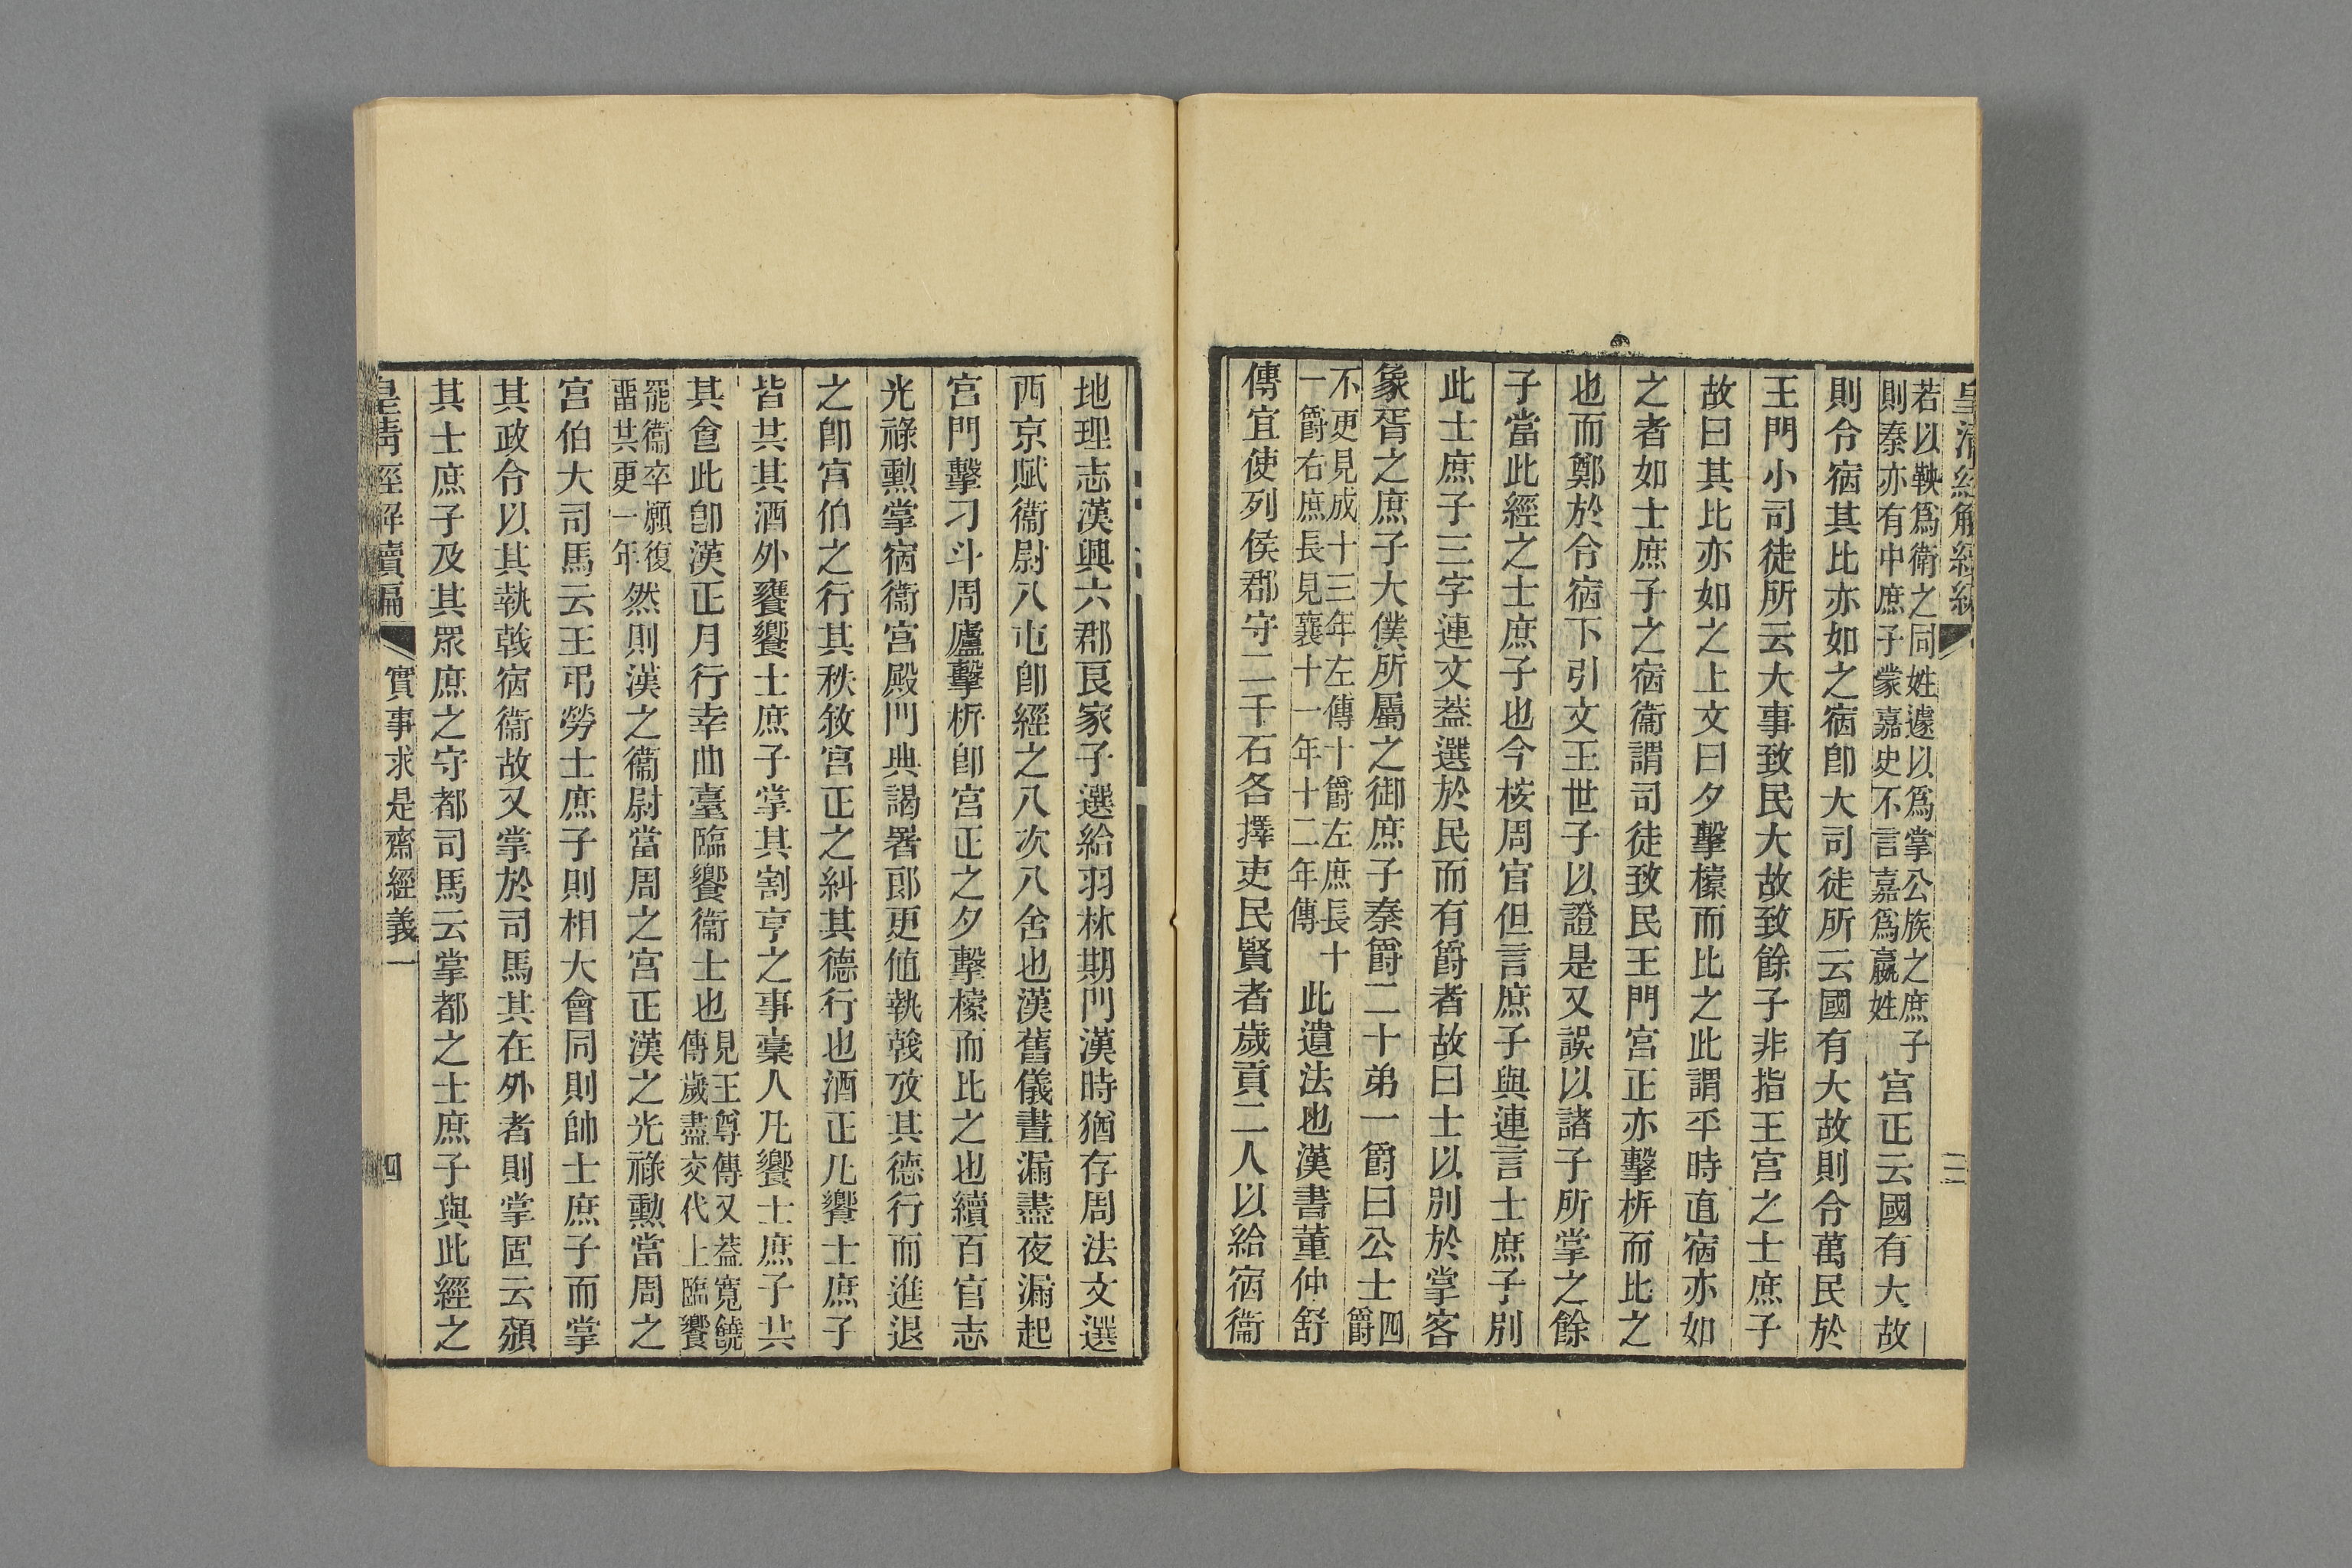 皇清經解續編
若以鞅爲衛之同姓遽以爲掌公族之庶子
則秦亦有中庶子蒙嘉史不言嘉爲嬴姓
宮正云國有大故
則令宿其比亦如之宿卽大司徒所云國有大故則令萬民於
王門小司徒所云大事致民大故致餘子非指王宮之士庶子
故曰其比亦如之上文曰夕擊㯓而比之此謂平時直宿亦如
之者如士庶子之宿衞謂司徒致民王門宮正亦擊柝而比之
也而鄭於令宿下引文王世子以證是又誤以諸子所掌之餘
子當此經之士庶子也今桉周官但言庶子與連言士庶子別
此士庶子三字連文葢選於民而有爵者故曰士以別於掌客
象胥之庶子大僕所屬之御庶子秦爵二十弟一爵曰公士四爵
不更見成十三年左傳十爵左庶長十
一爵右庶長見襄十一年十二年傳
此遺法也漢書董仲舒
傳宜使列侯郡守二千石各擇吏民賢者歲貢二人以給宿衞
地理志漢興六郡良家子選給羽林期門漢時猶存周法文選
西京賦衞尉八屯卽經之八次八舍也漢舊儀晝漏盡夜漏起
宮門擊刁斗周廬擊柝卽宮正之夕擊㯓而比之也續百官志
光祿勳掌宿衞宮殿門典謁署郎更值執戟攷其德行而進退
之卽宮伯之行其秩敘宮正之糾其德行也酒正凡饗士庶子
皆共其酒外饔饗士庶子掌其割亨之事槀人凡饗士庶子共
其食此卽漢正月行幸曲臺臨饗衞士也
見王尊傳又葢寬饒
傳歲盡交代上臨饗
罷衞卒願復
畱共更一年
然則漢之衞尉當周之宮正漢之光祿勳當周之
宮伯大司馬云王弔勞士庶子則相大會同則帥士庶子而掌
其政令以其執戟宿衞故又掌於司馬其在外者則掌固云頒
其士庶子及其眾庶之守都司馬云掌都之士庶子與此經之
皇清經解續編 實事求是齋經義一 四